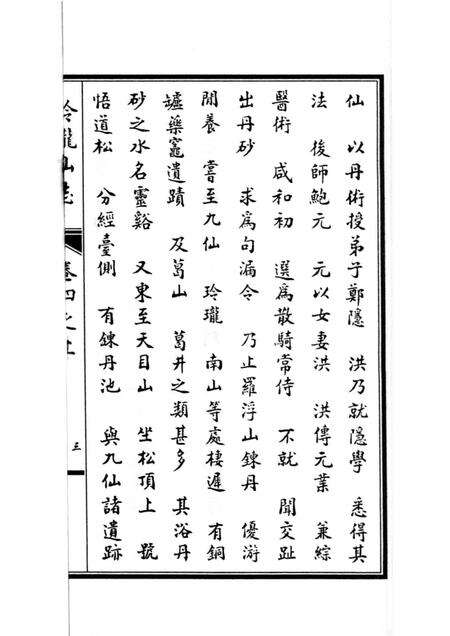 仙　以丹術授弟子鄭隱　洪乃就隱學　悉得其
法　後師鮑元　元以女妻洪　洪傳元業　兼綜
醫術　咸和初　選為散騎常侍　不就　聞交趾
出丹砂　求為句漏令　乃止羅浮山鍊丹　優游
閒養　嘗至九仙　玲瓏　南山等處棲遲　有銅
罏藥竈遺蹟　及葛山　葛井之類甚多　其浴丹
砂之水名靈谿　又東至天目山　坐松頂上　號
悟道松　分經臺側　有鍊丹池　與九仙諸遺跡
玲瓏山志
卷四之上
三